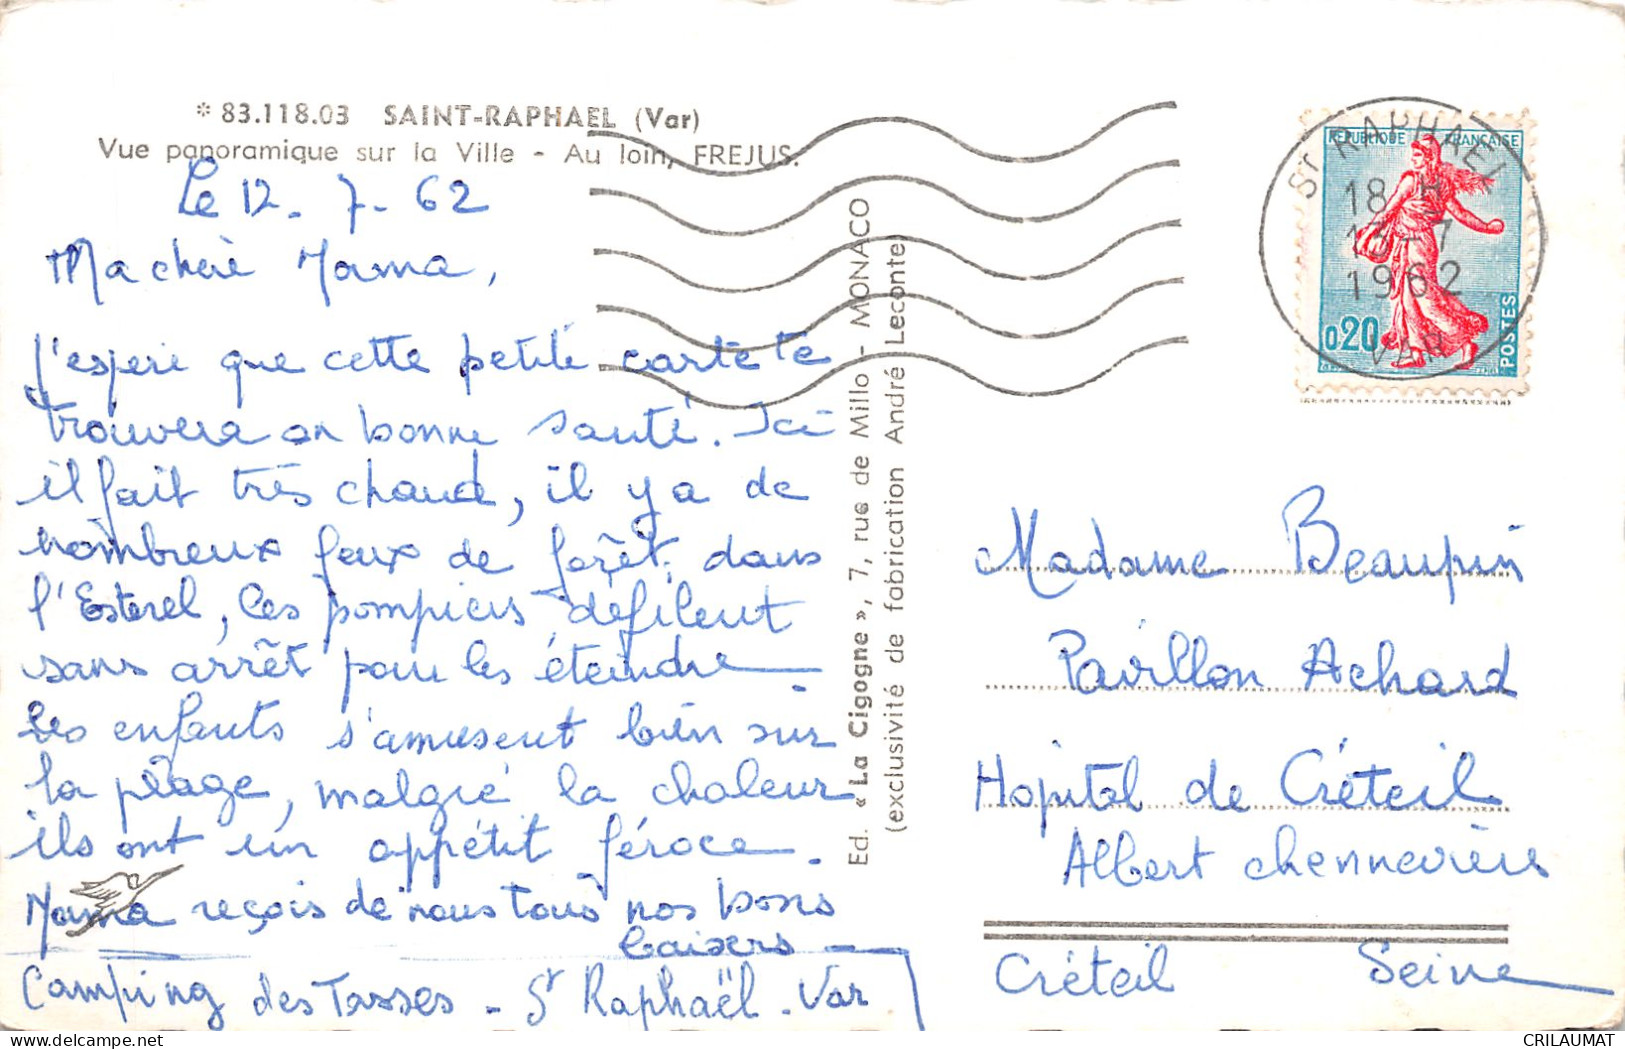 * 83.118.03 SAINT-RAPHAEL (Var)
Vue panoramique sur la Ville - Au loin, FREJUS.
Le 12 - 7 - 62
Ma chère Mama,
J'espere que cette petite carte te
trouvera en bonne santé. Ici
il fait très chaud, il y a de
nombreux feux de forêt, dans
l'Esterel, les pompiers défilent
sans arrêt pour les éteindre.
Les enfants s'amusent bien sur
la plage, malgré la chaleur
ils ont un appétit féroce.
Mama reçois de nous tous nos bons
baisers -
Camping des Tasses - St Raphaël - Var
Ed. « La Cigogne », 7, rue de Millo - MONACO
(exclusivité de fabrication André Leconte)
REPUBLIQUE FRANÇAISE
0,20
POSTES
ST RAPHAEL
18 H
13 - 7
1962
VAR
Madame Beaupin
Pavillon Achard
Hôpital de Créteil
Albert Chennevière
Créteil Seine
CRILAUMAT